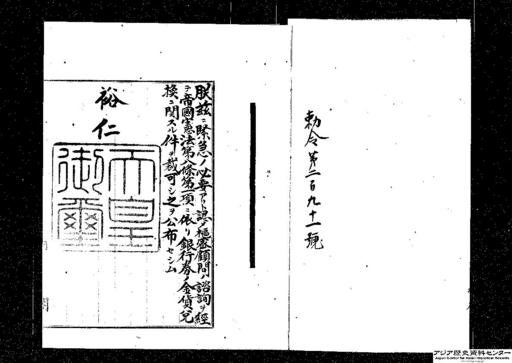 勅令第二百九十一號
朕茲ニ緊急ノ必要アリト認メ樞密顧問ノ諮詢ヲ經
テ帝國憲法第八條第一項ニ依リ銀行券ノ金貨兌
換ニ關スル件ヲ裁可シ之ヲ公布セシム
裕仁
天皇
御璽
アジア歴史資料センター
Japan Center for Asian Historical Records